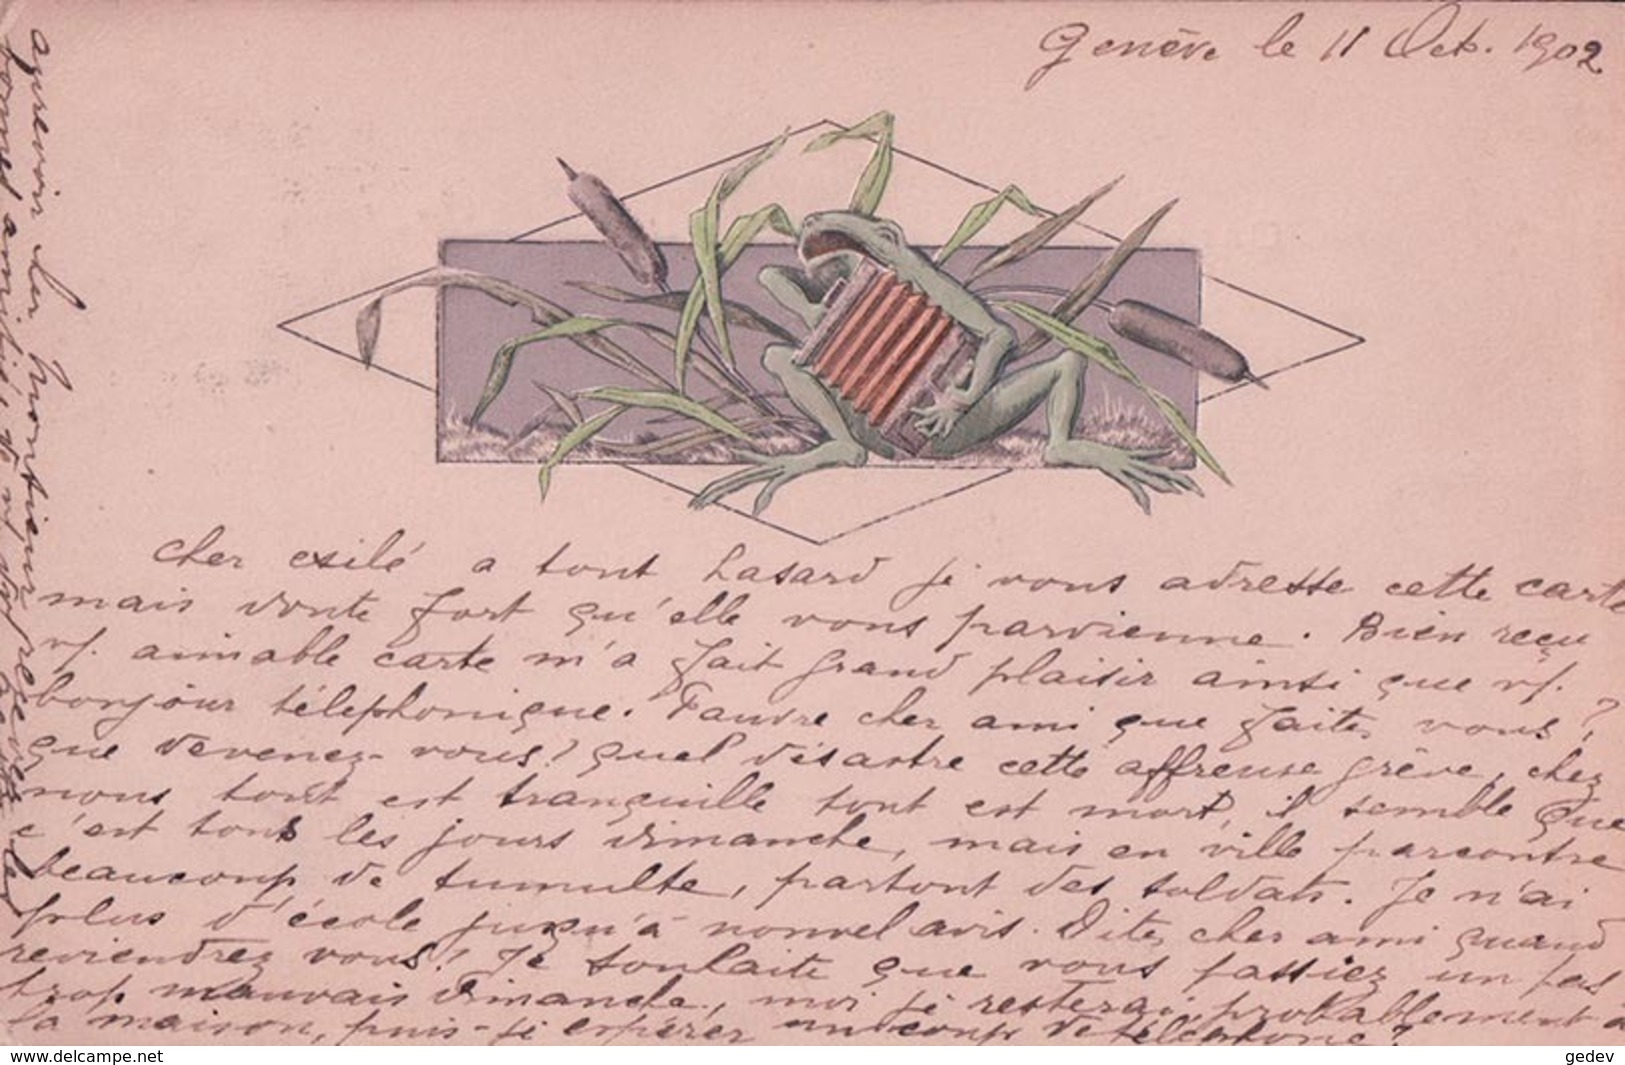 Genève le 11 Oct. 1902
cher exilé a tout hasard je vous adresse cette carte
mais doute fort qu'elle vous parvienne. Bien reçu
v/. aimable carte m'a fait grand plaisir ainsi que v/.
bonjour téléphonique. Pauvre cher ami que faites vous?
que devenez-vous? quel désastre cette affreuse grève, chez
nous tout est tranquille tout est mort, il semble que
c'est tous les jours dimanche, mais en ville parcontre
beaucoup de tumulte, partout des soldats. Je n'ai
plus d'école jusqu'à nouvel avis. Dites cher ami quand
reviendrez vous? Je souhaite que vous passiez un pas
trop mauvais dimanche, moi je resterai probablement à
la maison, puis-je espérer un coup de téléphone?
aurevoir cher Monsieur recevez les
bonnes amitiés de v/.
www.delcampe.net
gedev